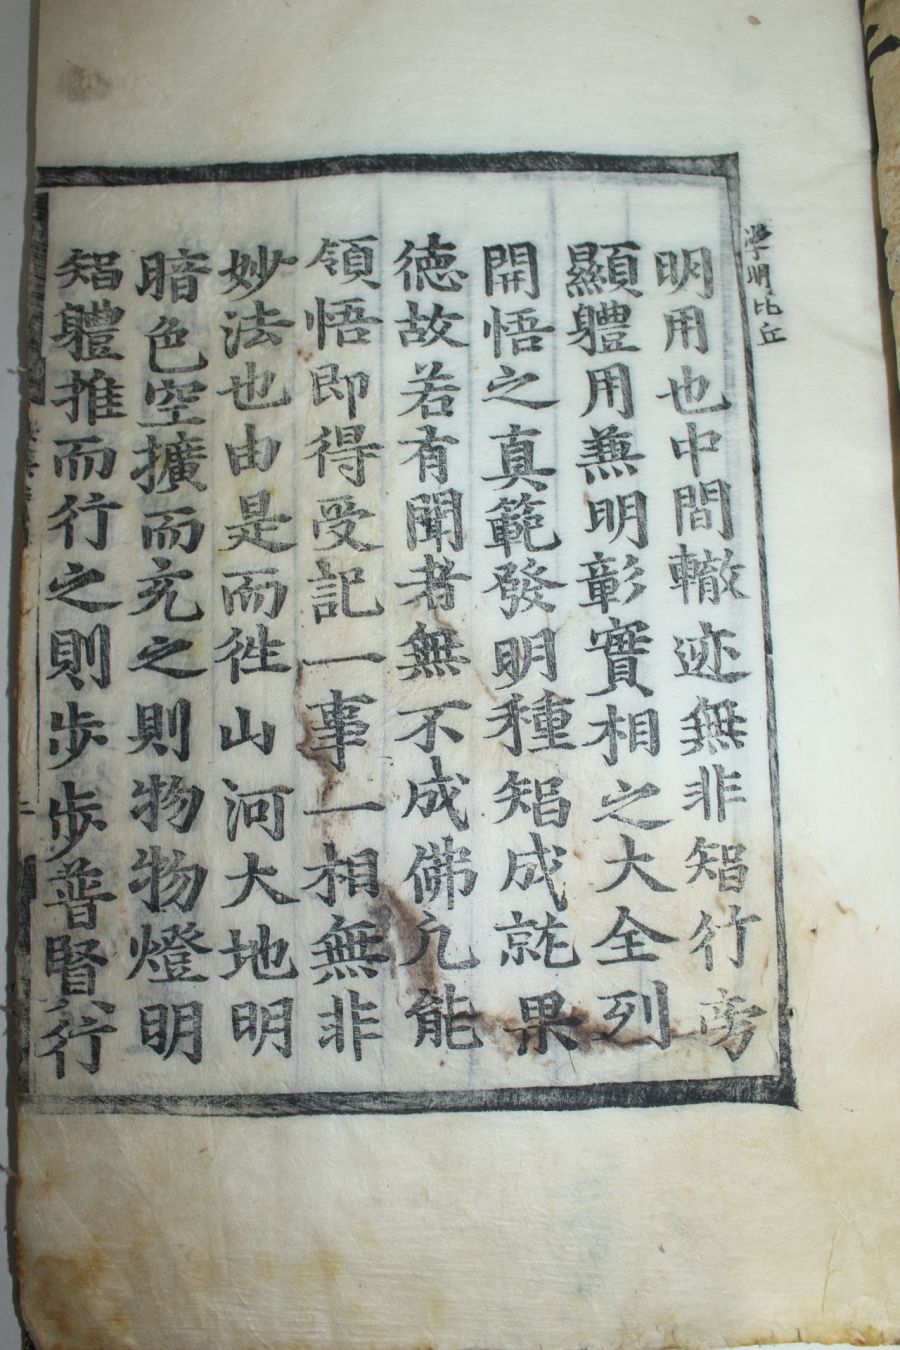 学明比丘
明用也中間轍迹無非智行旁
顯體用兼明彰實相之大全列
開悟之真範發明種智成就果
德故若有聞者無不成佛凢能
領悟即得受記一事一相無非
妙法也由是而徃山河大地明
暗色空擴而充之則物物燈明
智體推而行之則步步普賢行